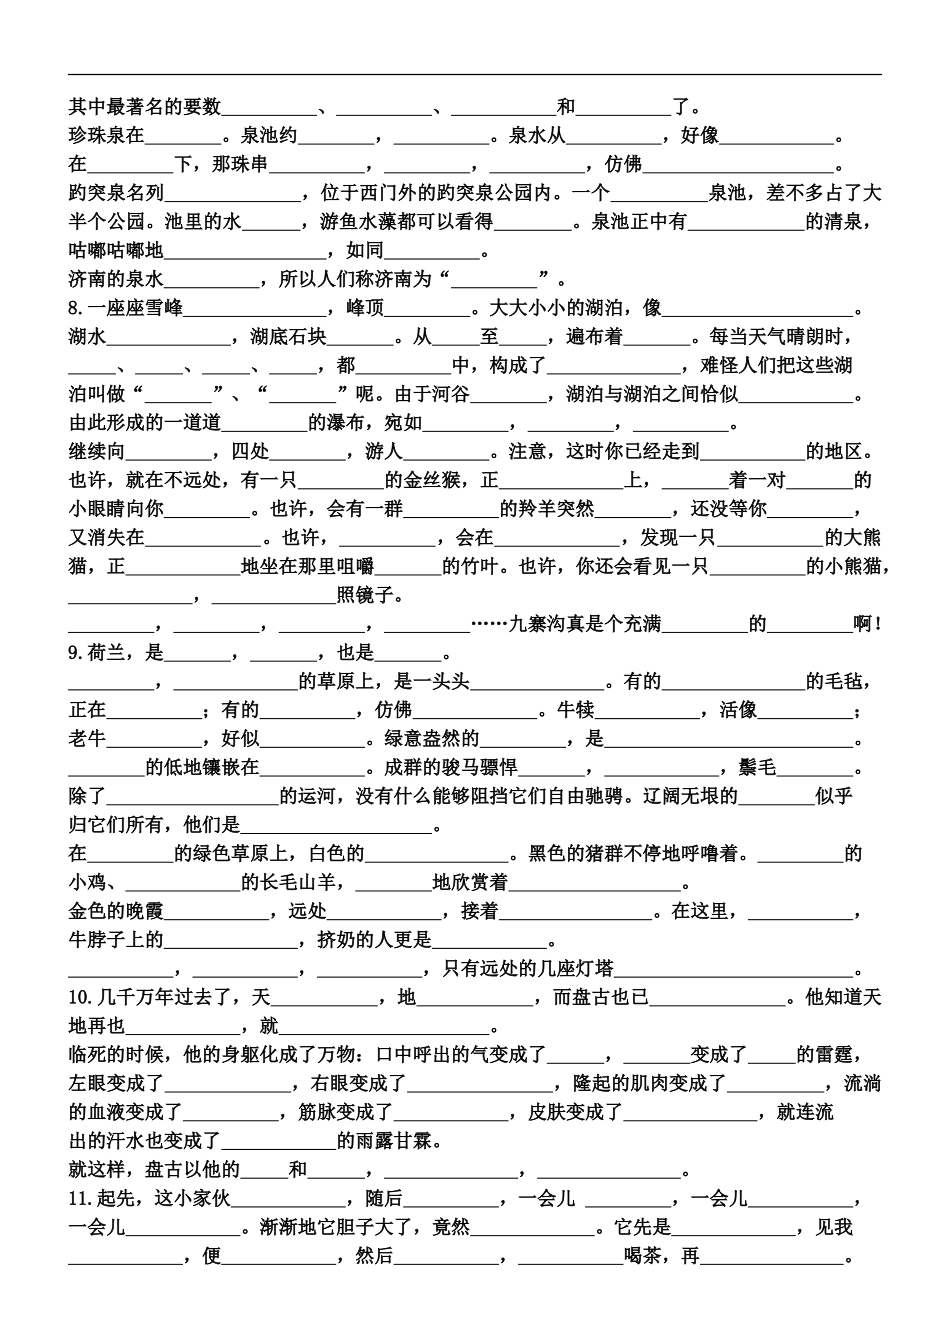 其中最著名的要数__________、__________、___________和__________了。
珍珠泉在________。泉池约________，__________。泉水从__________，好像____________。
在_________下，那珠串__________，_________，__________，仿佛____________________。
趵突泉名列______________，位于西门外的趵突泉公园内。一个__________泉池，差不多占了大
半个公园。池里的水______，游鱼水藻都可以看得________。泉池正中有____________的清泉，
咕嘟咕嘟地_________________，如同__________。
济南的泉水__________，所以人们称济南为“_________”。
8.一座座雪峰_______________，峰顶_________。大大小小的湖泊，像____________________。
湖水_____________，湖底石块_______。从_____至_____，遍布着_______。每当天气晴朗时，
_____、_____、_____、_____，都__________中，构成了______________，难怪人们把这些湖
泊叫做“_______”、“_______”呢。由于河谷________，湖泊与湖泊之间恰似____________。
由此形成的一道道_________的瀑布，宛如_________，_________，__________。
继续向_________，四处________，游人_________。注意，这时你已经走到___________的地区。
也许，就在不远处，有一只_________的金丝猴，正_____________上，_______着一对_______的
小眼睛向你_________。也许，会有一群__________的羚羊突然________，还没等你_________，
又消失在____________。也许，__________，会在_____________，发现一只___________的大熊
猫，正____________地坐在那里咀嚼_______的竹叶。也许，你还会看见一只__________的小熊猫，
_____________，_____________照镜子。
_________，_________，_________，_________……九寨沟真是个充满_________的_________啊！
9.荷兰，是_______，_______，也是_______。
_________，_____________的草原上，是一头头______________。有的_______________的毛毡，
正在__________；有的__________，仿佛_____________。牛犊___________，活像__________；
老牛__________，好似___________。绿意盎然的_________，是__________________________。
________的低地镶嵌在___________。成群的骏马骠悍_______，____________，鬃毛________。
除了__________________的运河，没有什么能够阻挡它们自由驰骋。辽阔无垠的________似乎
归它们所有，他们是____________________。
在_________的绿色草原上，白色的_______________。黑色的猪群不停地呼噜着。_________的
小鸡、____________的长毛山羊，________地欣赏着__________________。
金色的晚霞___________，远处____________，接着________________。在这里，___________，
牛脖子上的______________，挤奶的人更是____________。
___________，___________，___________，只有远处的几座灯塔_________________________。
10.几千万年过去了，天___________，地____________，而盘古也已______________。他知道天
地再也____________，就______________________。
临死的时候，他的身躯化成了万物：口中呼出的气变成了______，_______变成了_____的雷霆，
左眼变成了_____________，右眼变成了_______________，隆起的肌肉变成了__________，流淌
的血液变成了__________，筋脉变成了____________，皮肤变成了______________，就连流
出的汗水也变成了____________的雨露甘霖。
就这样，盘古以他的_____和______，______________，_______________。
11.起先，这小家伙____________，随后__________，一会儿 _________，一会儿___________，
一会儿____________。渐渐地它胆子大了，竟然_____________。它先是_____________，见我
____________，便____________，然后___________，___________喝茶，再_______________。